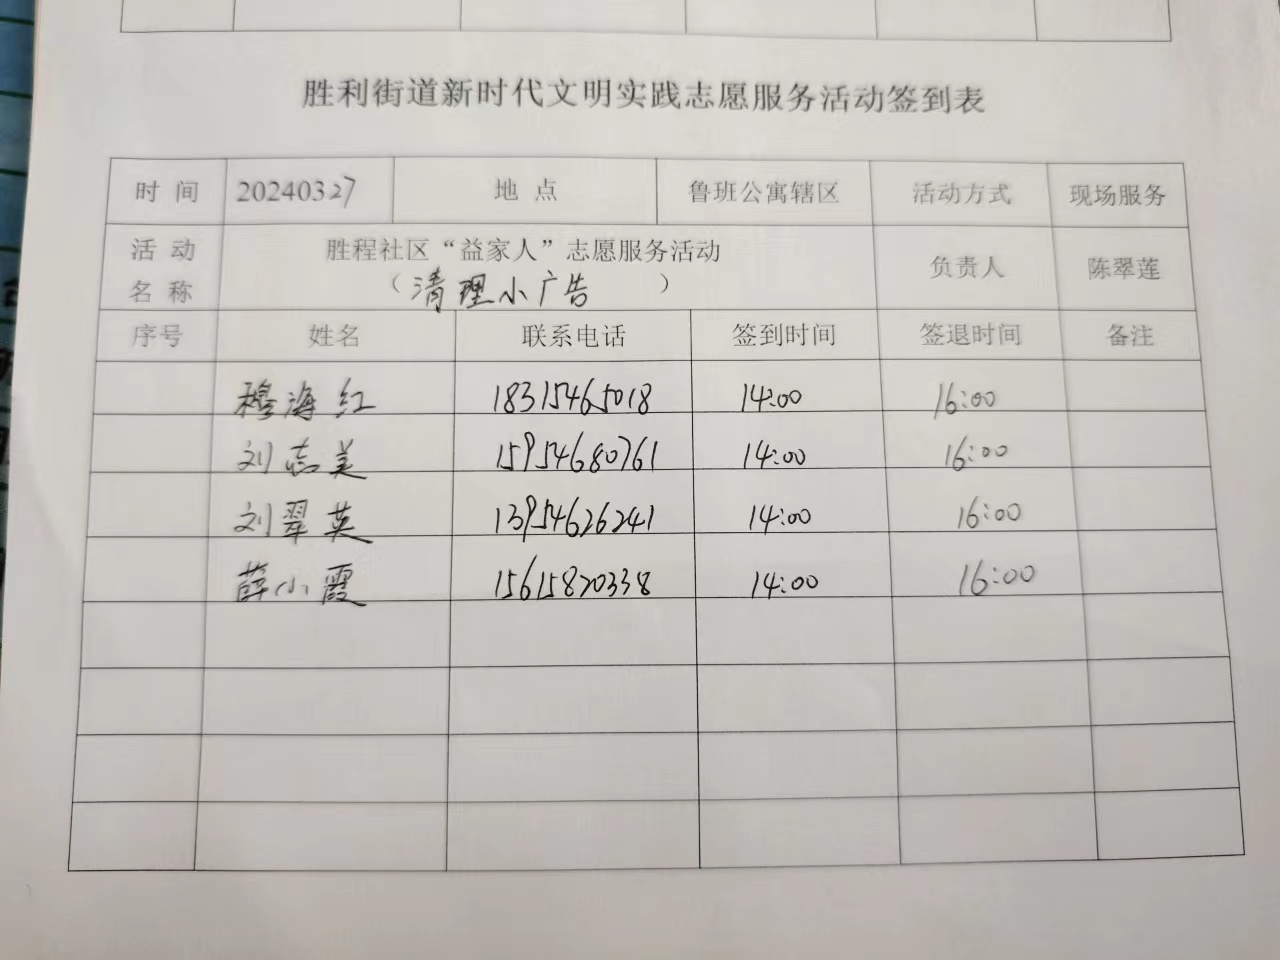 胜利街道新时代文明实践志愿服务活动签到表
时 间 20240327 地 点 鲁班公寓辖区 活动方式 现场服务
活 动 名 称 胜程社区“益家人”志愿服务活动 负责人 陈翠莲
（清理小广告）
序号 姓名 联系电话 签到时间 签退时间 备注
穆海红 18315465018 14:00 16:00
刘志美 15954680761 14:00 16:00
刘翠英 13954626241 14:00 16:00
薛小霞 15615820338 14:00 16:00